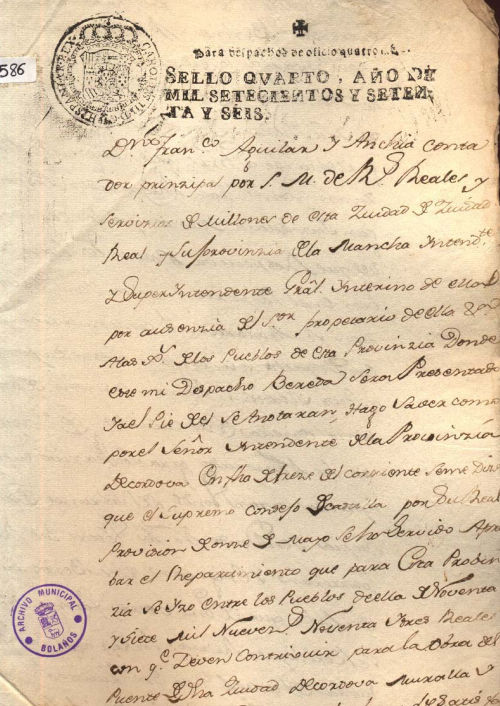 586
Para despachos de oficio quatro mrs.
SELLO QVARTO, AÑO DE
MIL SETECIENTOS Y SETEN-
TA Y SEIS.
Dn. Franco. Aguilar y Anchia Conta
dor prinzipal por S. M. de Rs. Reales y
Servizios de Millones de esta Ziudad de Ziudad
Real y su provinzia de la Mancha Intendte.
y Superintendente Gral. Interino de ella
por ausenzia del Sor. propietario de ella &a.
Alas Js. de los Pueblos de esta Provinzia Donde
este mi Despacho Vereda sera Presentado
y al Pie de el se Anotaran, Hago Saver como
por el Señor Intendente de la Provinzia
de Cordova Con fha de treze del corriente se me Dize
que el Supremo Consejo de Castilla por su Real
Provision de onze de Mayo se ha servido Apro
bar el Repartimiento que para Esta Provin
zia se Izo entre los Pueblos de ella de Noventa
y siete Mil Nuevezs. Noventa y tres Reales
con qe. Deven Contribuir para la Obra del
Puente de dha Ziudad de Cordova Muralla y
ARCHIVO MUNICIPAL
BOLAÑOS